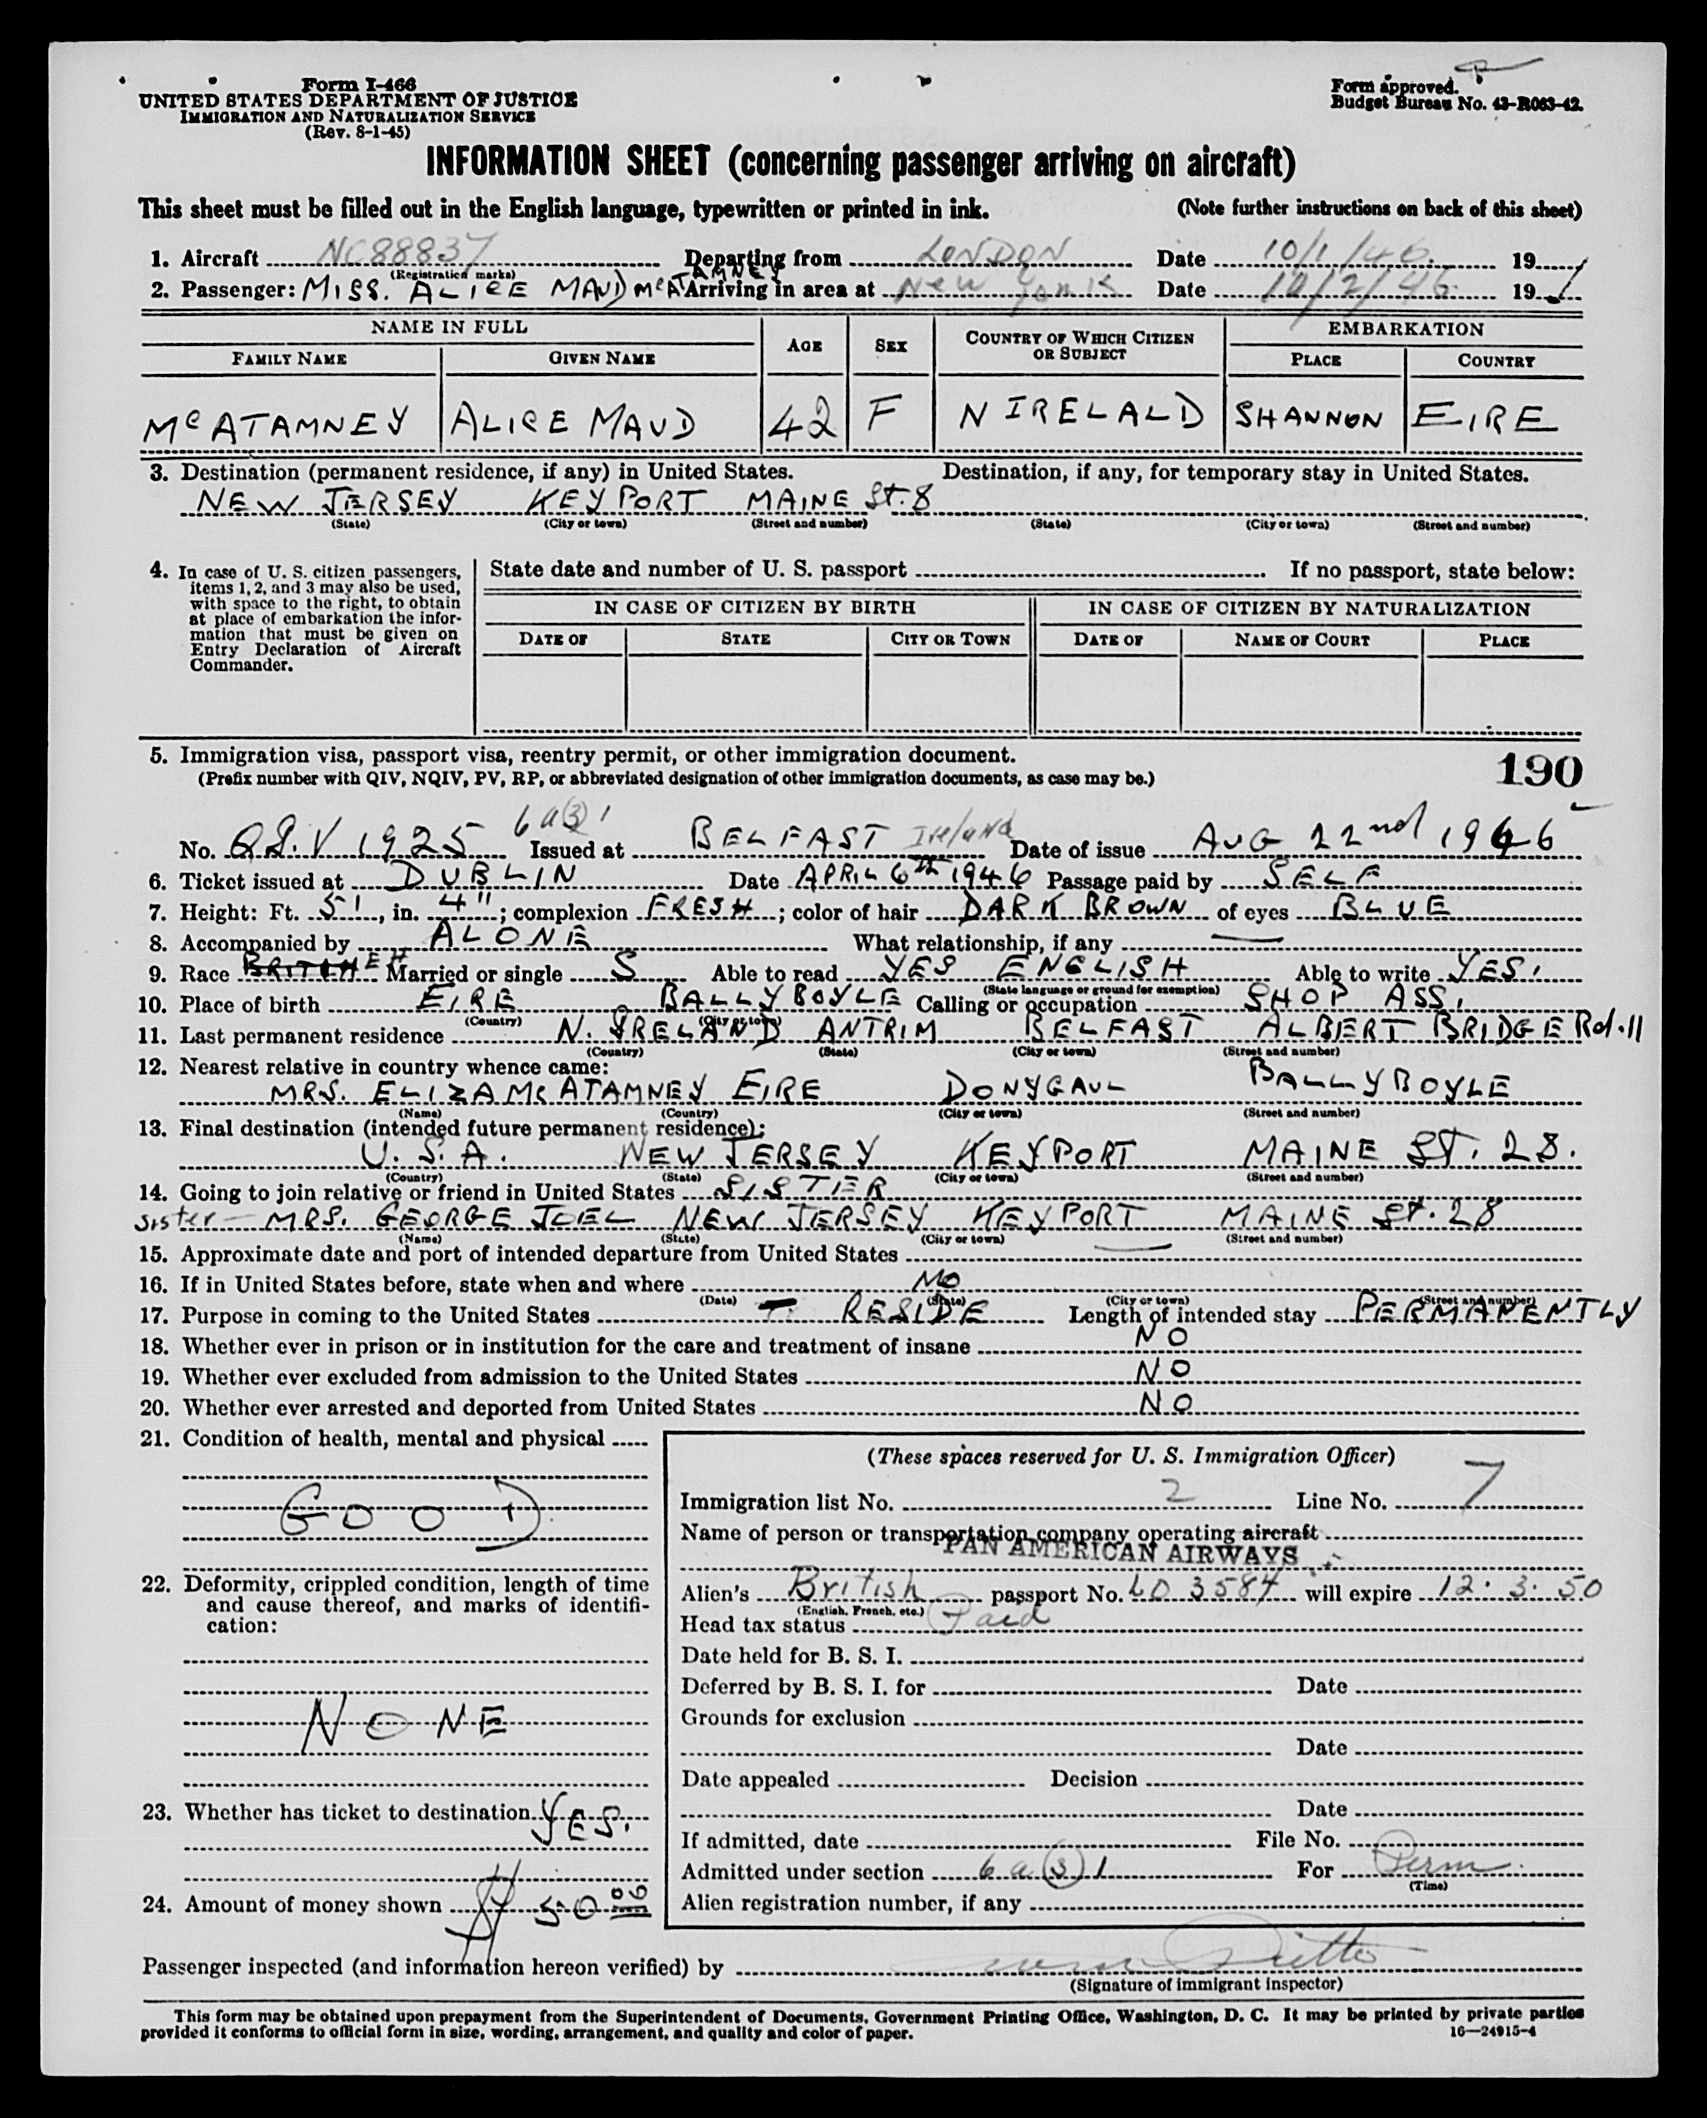 Form I-466
UNITED STATES DEPARTMENT OF JUSTICE
IMMIGRATION AND NATURALIZATION SERVICE
(Rev. 8-1-45)
Form approved.
Budget Bureau No. 43-R063-42.
INFORMATION SHEET (concerning passenger arriving on aircraft)
This sheet must be filled out in the English language, typewritten or printed in ink. (Note further instructions on back of this sheet)
1. Aircraft NC88837 Departing from LONDON Date 10/1/46 19
(Registration marks)
2. Passenger: MISS. ALICE MAUD McATAMNEY Arriving in area at New York Date 10/2/46 19
NAME IN FULL AGE SEX COUNTRY OF WHICH CITIZEN OR SUBJECT EMBARKATION
FAMILY NAME GIVEN NAME PLACE COUNTRY
McATAMNEY ALICE MAUD 42 F N IRELALD SHANNON EIRE
3. Destination (permanent residence, if any) in United States. Destination, if any, for temporary stay in United States.
NEW JERSEY KEYPORT MAINE St. 8
(State) (City or town) (Street and number) (State) (City or town) (Street and number)
4. In case of U. S. citizen passengers, items 1, 2, and 3 may also be used, with space to the right, to obtain at place of embarkation the information that must be given on Entry Declaration of Aircraft Commander.
State date and number of U. S. passport If no passport, state below:
IN CASE OF CITIZEN BY BIRTH IN CASE OF CITIZEN BY NATURALIZATION
DATE OF STATE CITY OR TOWN DATE OF NAME OF COURT PLACE
5. Immigration visa, passport visa, reentry permit, or other immigration document.
(Prefix number with QIV, NQIV, PV, RP, or abbreviated designation of other immigration documents, as case may be.)
190
6a(3)1
No. Q.I.V 1925 Issued at BELFAST Ireland Date of issue AUG 22nd 1946
6. Ticket issued at DUBLIN Date APRIL 6TH 1946 Passage paid by SELF
7. Height: Ft. 5', in. 4"; complexion FRESH; color of hair DARK BROWN of eyes BLUE
8. Accompanied by ALONE What relationship, if any —
9. Race Married or single S Able to read YES ENGLISH Able to write YES.
(State language or ground for exemption)
10. Place of birth EIRE BALLYBOYLE Calling or occupation SHOP ASS.
(Country) (City or town)
11. Last permanent residence N. IRELAND ANTRIM BELFAST ALBERT BRIDGE Rd. 11
(Country) (State) (City or town) (Street and number)
12. Nearest relative in country whence came:
MRS. ELIZA McATAMNEY EIRE DONYGAUL BALLYBOYLE
(Name) (Country) (City or town) (Street and number)
13. Final destination (intended future permanent residence):
U.S.A. NEW JERSEY KEYPORT MAINE ST. 28.
(Country) (State) (City or town) (Street and number)
14. Going to join relative or friend in United States SISTER
sister — MRS. GEORGE JOEL NEW JERSEY KEYPORT MAINE St. 28
(Name) (State) (City or town) (Street and number)
15. Approximate date and port of intended departure from United States —
16. If in United States before, state when and where NO
(Date) (State) (City or town) (Street and number)
17. Purpose in coming to the United States RESIDE Length of intended stay PERMANENTLY
18. Whether ever in prison or in institution for the care and treatment of insane NO
19. Whether ever excluded from admission to the United States NO
20. Whether ever arrested and deported from United States NO
21. Condition of health, mental and physical
GOOD
22. Deformity, crippled condition, length of time and cause thereof, and marks of identification:
NONE
23. Whether has ticket to destination YES.
24. Amount of money shown $ 50 00
(These spaces reserved for U. S. Immigration Officer)
Immigration list No. 2 Line No. 7
Name of person or transportation company operating aircraft
PAN AMERICAN AIRWAYS
Alien's British passport No. LD 3584 will expire 12. 3. 50
(English, French, etc.)
Head tax status Paid
Date held for B. S. I.
Deferred by B. S. I. for Date
Grounds for exclusion
Date
Date appealed Decision
Date
If admitted, date File No.
Admitted under section 6a(3)1 For Perm.
(Time)
Alien registration number, if any
Passenger inspected (and information hereon verified) by
(Signature of immigrant inspector)
This form may be obtained upon prepayment from the Superintendent of Documents, Government Printing Office, Washington, D. C. It may be printed by private parties
provided it conforms to official form in size, wording, arrangement, and quality and color of paper. 16—24915-4